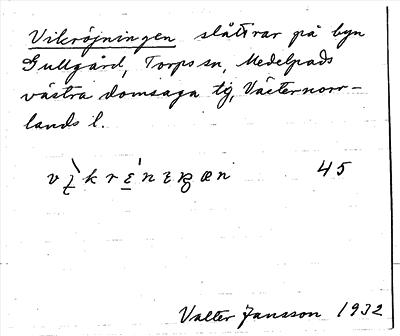 Vikröjningen slåttrar på byn
Gullgård, Torps sn, Medelpads
västra domsaga tg, Västernorr-
lands l.
45
Valter Jansson 1932